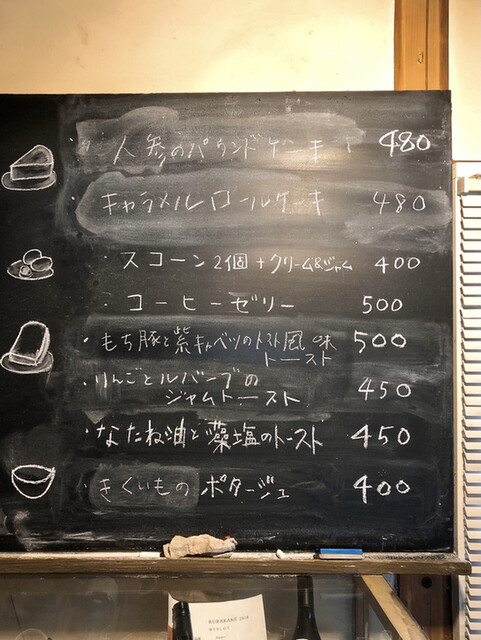 ・人参のパウンドケーキ 480
・キャラメルロールケーキ 480
・スコーン2個+クリーム&ジャム 400
・コーヒーゼリー 500
・もち豚と紫キャベツのトマト風味 500
トースト
・りんごとルバーブの
ジャムトースト 450
・なたね油と藻塩のトースト 450
・きくいものポタージュ 400
KURAKAKE 2019
MERLOT